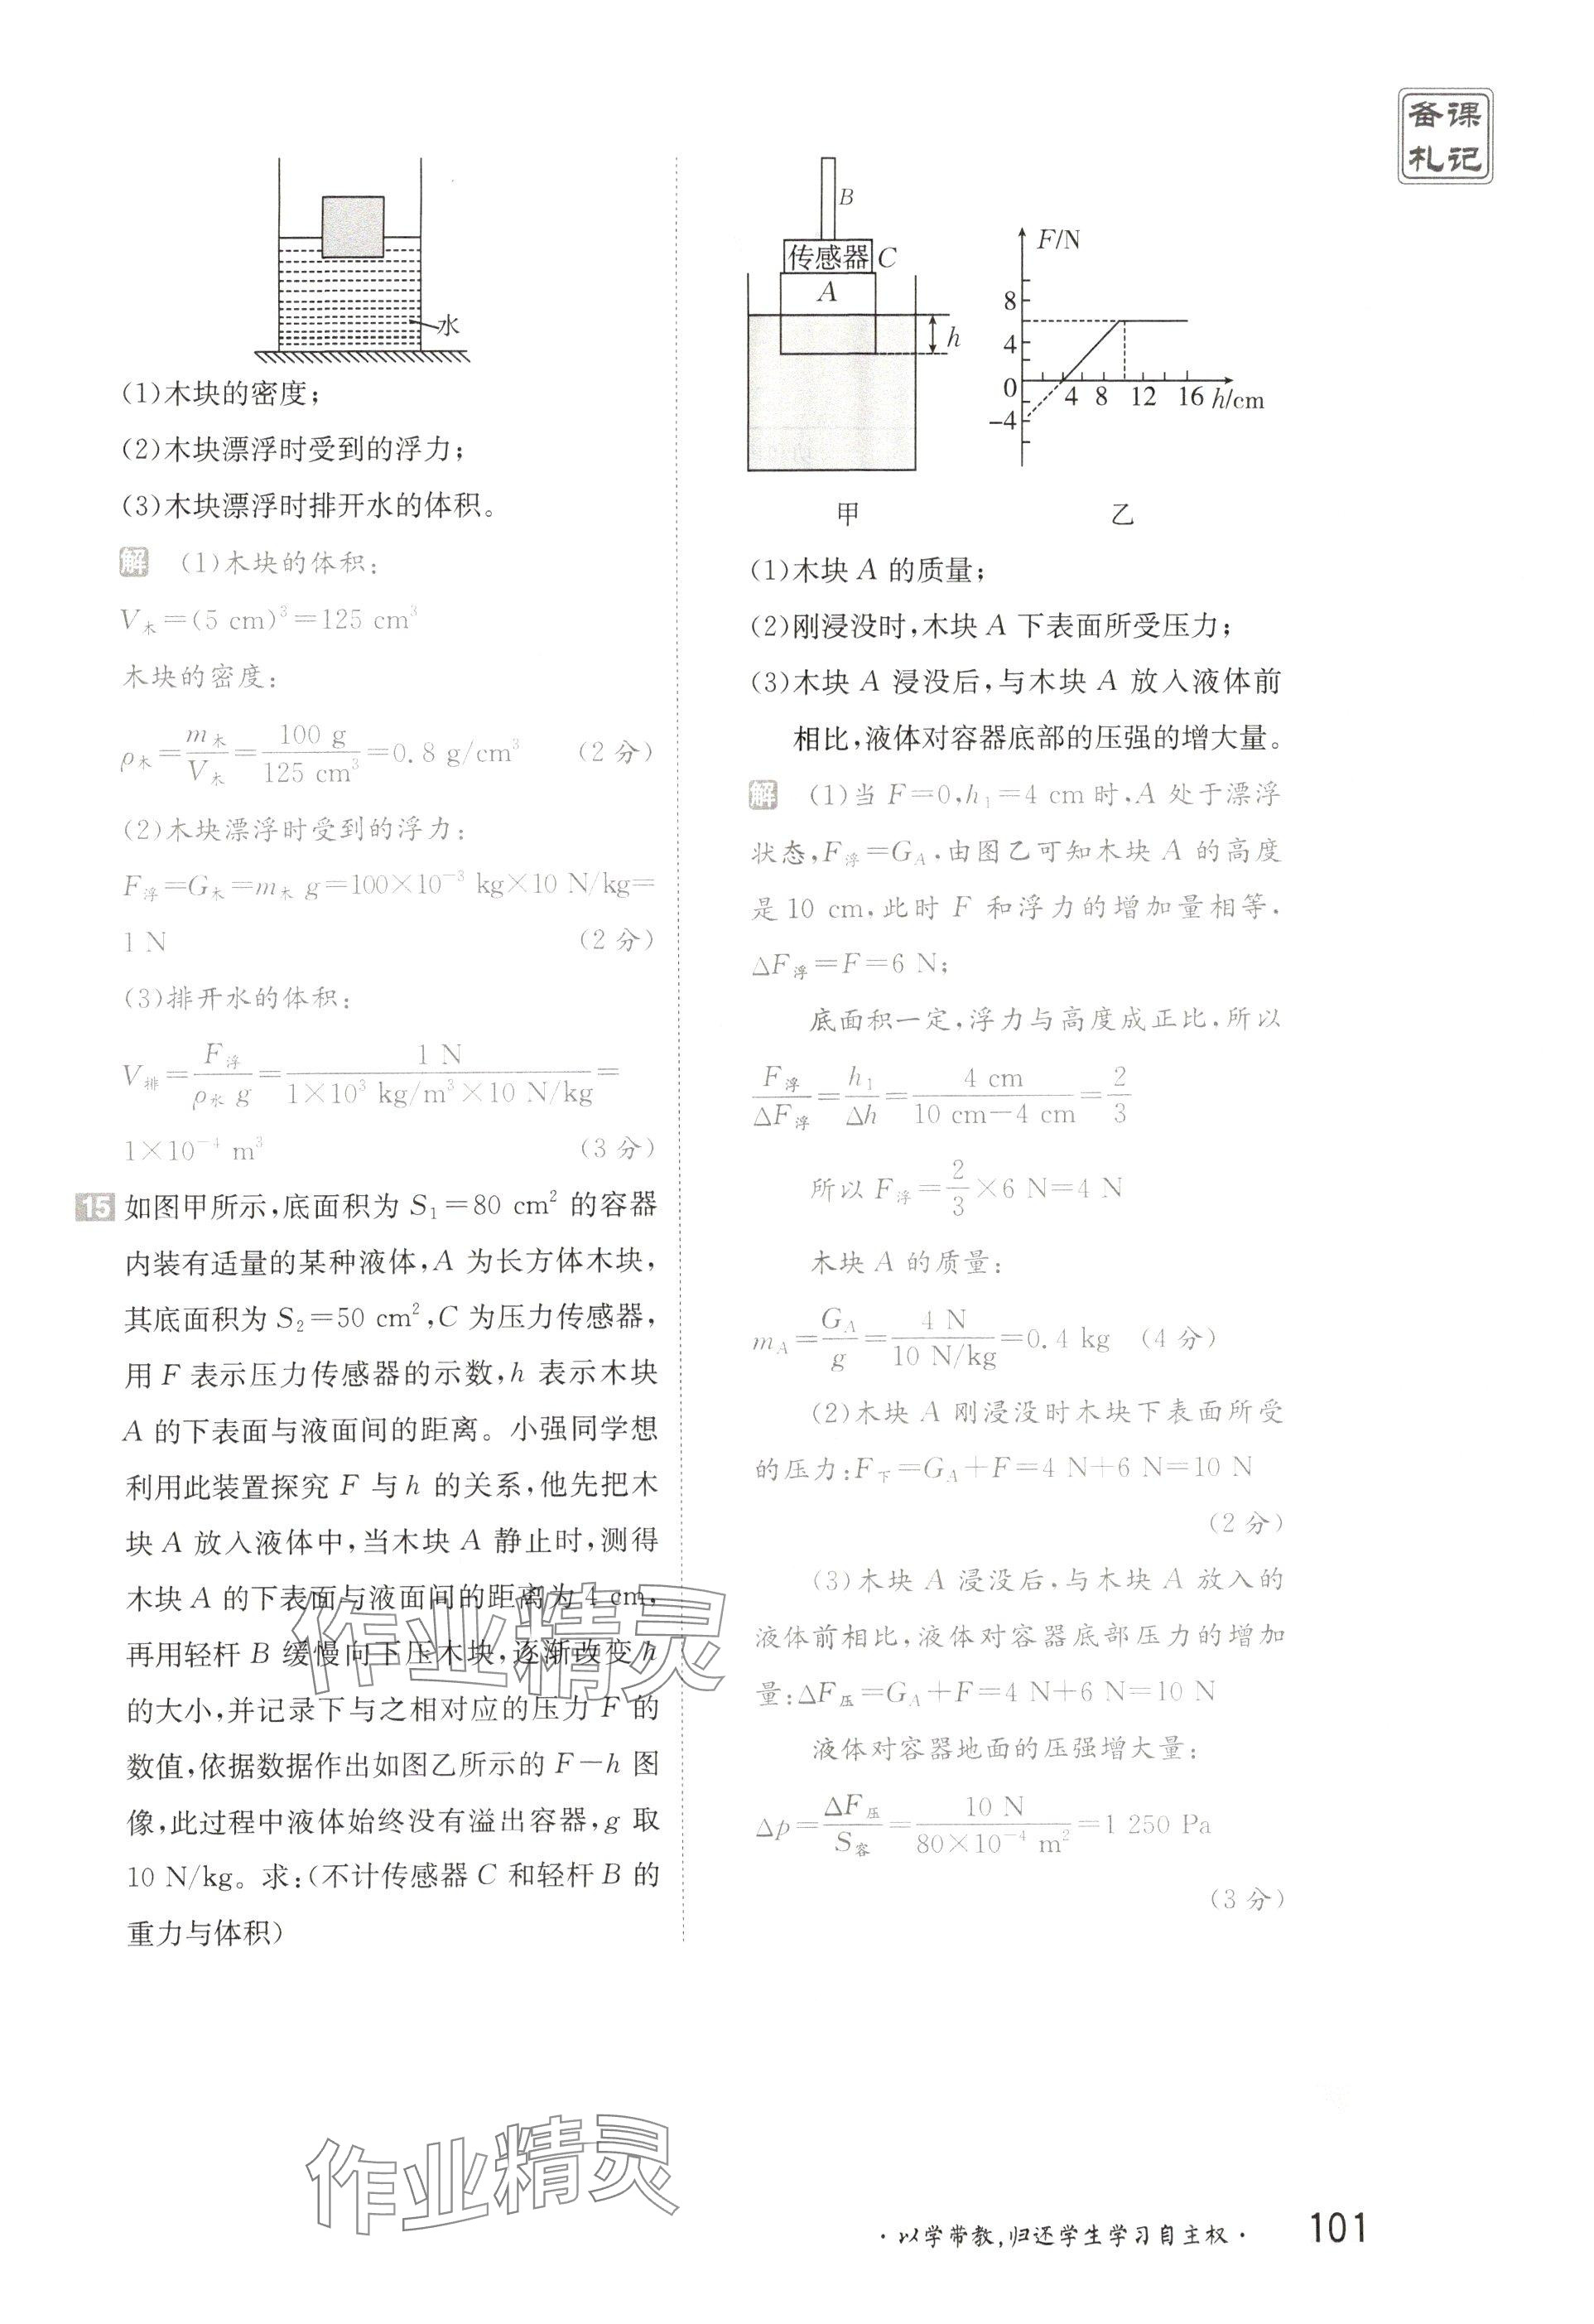 备课
札记
水
(1)木块的密度；
(2)木块漂浮时受到的浮力；
(3)木块漂浮时排开水的体积。
解 (1)木块的体积：
V木=(5 cm)³=125 cm³
木块的密度：
ρ木=m木/V木=100 g/125 cm³=0.8 g/cm³ (2分)
(2)木块漂浮时受到的浮力：
F浮=G木=m木 g=100×10⁻³ kg×10 N/kg=
1 N (2分)
(3)排开水的体积：
V排=F浮/ρ水 g=1 N/1×10³ kg/m³×10 N/kg=
1×10⁻⁴ m³ (3分)
15 如图甲所示，底面积为 S₁=80 cm² 的容器
内装有适量的某种液体，A 为长方体木块，
其底面积为 S₂=50 cm²，C 为压力传感器，
用 F 表示压力传感器的示数，h 表示木块
A 的下表面与液面间的距离。小强同学想
利用此装置探究 F 与 h 的关系，他先把木
块 A 放入液体中，当木块 A 静止时，测得
木块 A 的下表面与液面间的距离为 4 cm，
再用轻杆 B 缓慢向下压木块，逐渐改变 h
的大小，并记录下与之相对应的压力 F 的
数值，依据数据作出如图乙所示的 F－h 图
像，此过程中液体始终没有溢出容器，g 取
10 N/kg。求：(不计传感器 C 和轻杆 B 的
重力与体积)
B
传感器 C
A
h
甲
F/N
8
4
0
-4
4 8 12 16 h/cm
乙
(1)木块 A 的质量；
(2)刚浸没时，木块 A 下表面所受压力；
(3)木块 A 浸没后，与木块 A 放入液体前
相比，液体对容器底部的压强的增大量。
解 (1)当 F=0，h₁=4 cm 时，A 处于漂浮
状态，F浮=G_A，由图乙可知木块 A 的高度
是 10 cm，此时 F 和浮力的增加量相等，
ΔF浮=F=6 N；
底面积一定，浮力与高度成正比，所以
F浮/ΔF浮=h₁/Δh=4 cm/10 cm－4 cm=2/3
所以 F浮=2/3×6 N=4 N
木块 A 的质量：
m_A=G_A/g=4 N/10 N/kg=0.4 kg (4分)
(2)木块 A 刚浸没时木块下表面所受
的压力：F下=G_A+F=4 N+6 N=10 N
(2分)
(3)木块 A 浸没后，与木块 A 放入的
液体前相比，液体对容器底部压力的增加
量：ΔF压=G_A+F=4 N+6 N=10 N
液体对容器地面的压强增大量：
Δp=ΔF压/S容=10 N/80×10⁻⁴ m²=1 250 Pa
(3分)
作业精灵
作业精灵
·以学带教，归还学生学习自主权·
101